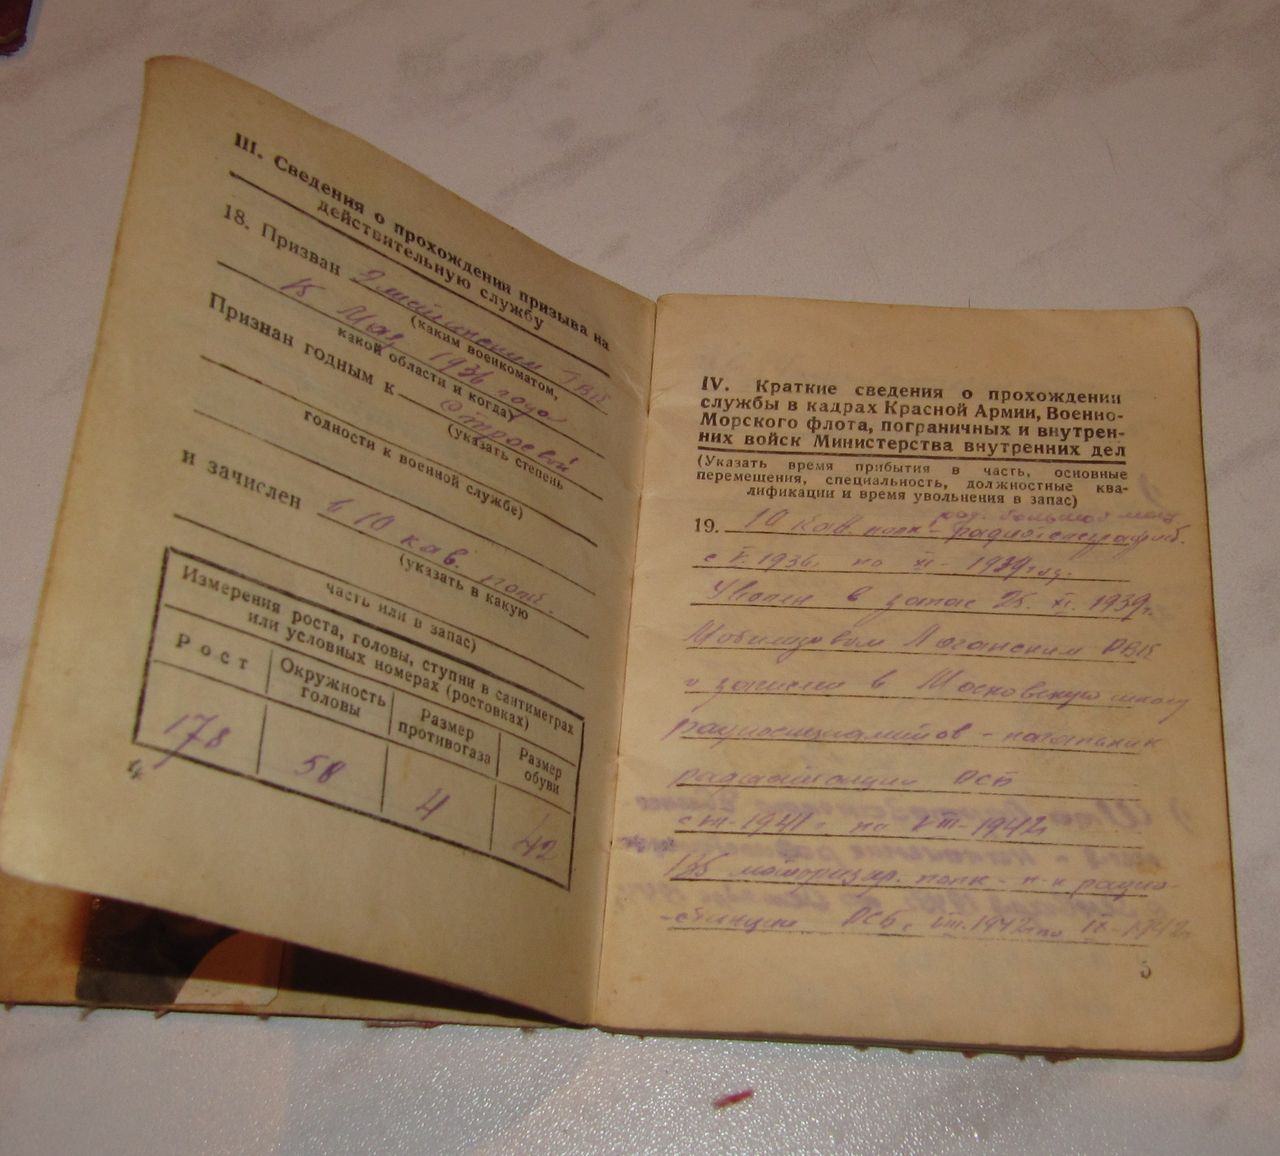 III. Сведения о прохождении призыва на
действительную службу
18. Призван
(каким военкоматом,
15 Мая 1936 года
какой области и когда)
Признан годным к строевой
(указать степень
годности к военной службе)
и зачислен в 10 кав. полк.
(указать в какую
часть или в запас)
Измерения роста, головы, ступни в сантиметрах
или условных номерах (ростовках)
Рост
Окружность
головы
Размер
противогаза
Размер
обуви
178
58
4
42
4
IV. Краткие сведения о прохождении
службы в кадрах Красной Армии, Военно-
Морского флота, пограничных и внутрен-
них войск Министерства внутренних дел
(Указать время прибытия в часть, основные
перемещения, специальность, должностные ква-
лификации и время увольнения в запас)
рад. большой мощ
19. 10 кав. полк - радиотелеграфист.
с V. 1936г по XI - 1939 год.
Уволен в запас 25. XI. 1939г.
Мобилизован Лаганским РВК
и зачислен в Московскую школу
радиоспециалистов - начальник
радиостанции РСБ
1941г по VIII-1942г
мотострелк. полк - н-к радио-
станции РСБ с VIII. 1942г по IX-1942г
5